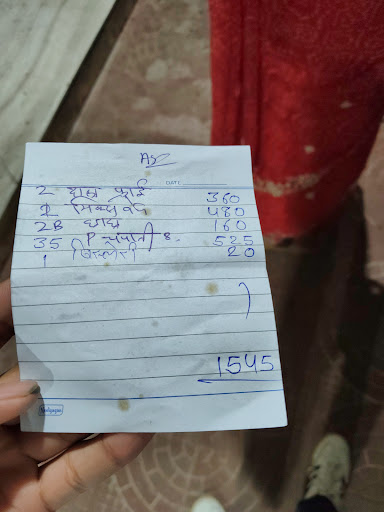 DATE
2 दाल फ्राई 360
2 मिक्स वेज 480
2B छाछ 160
35 P चपाती 525
1 बिसलेरी 20
1545